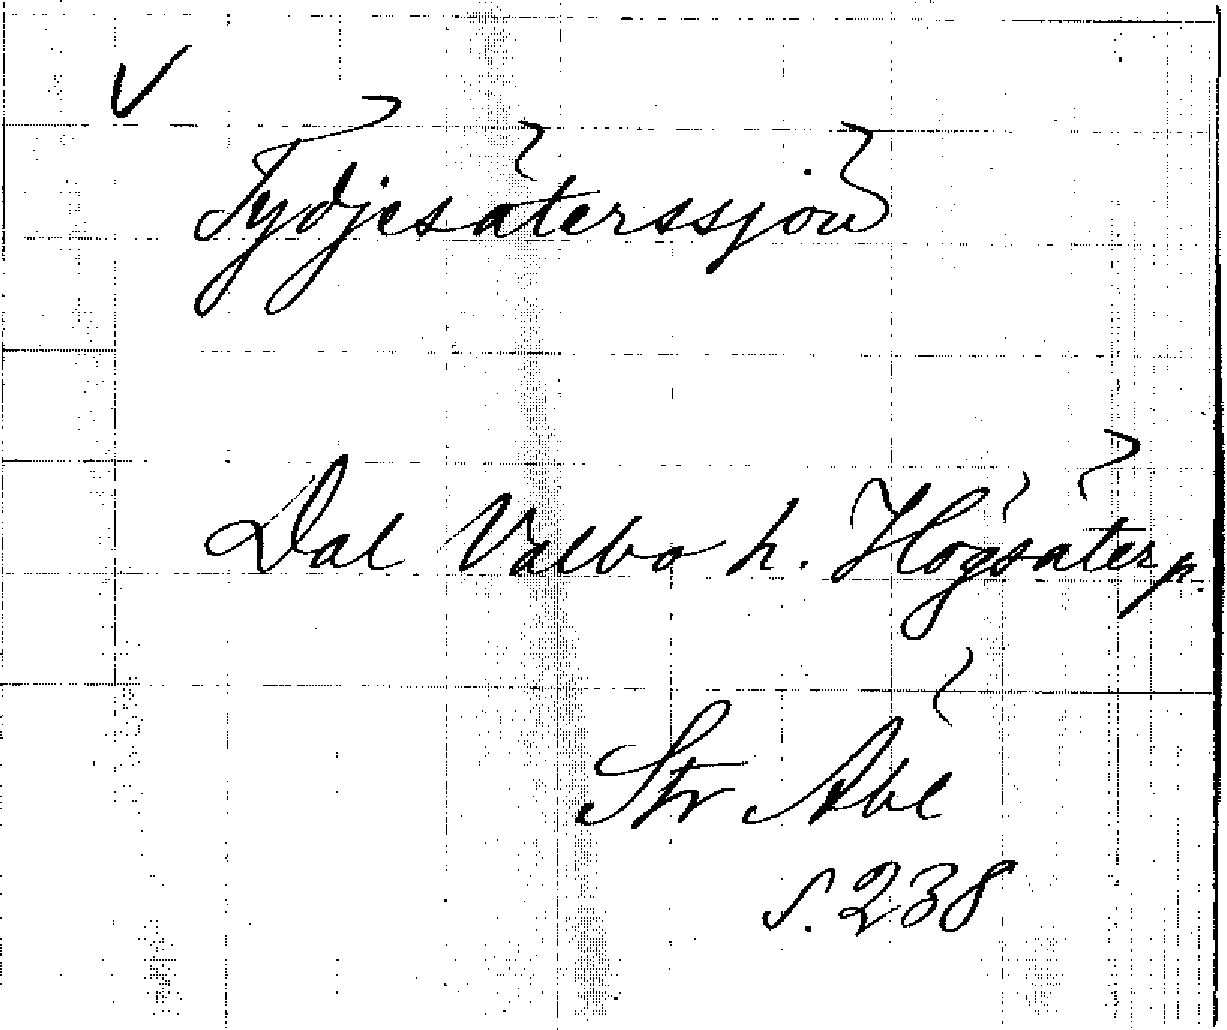 Tydjesäterssjön
Dal Valbo h. Högsäter p.
Str
s. 238